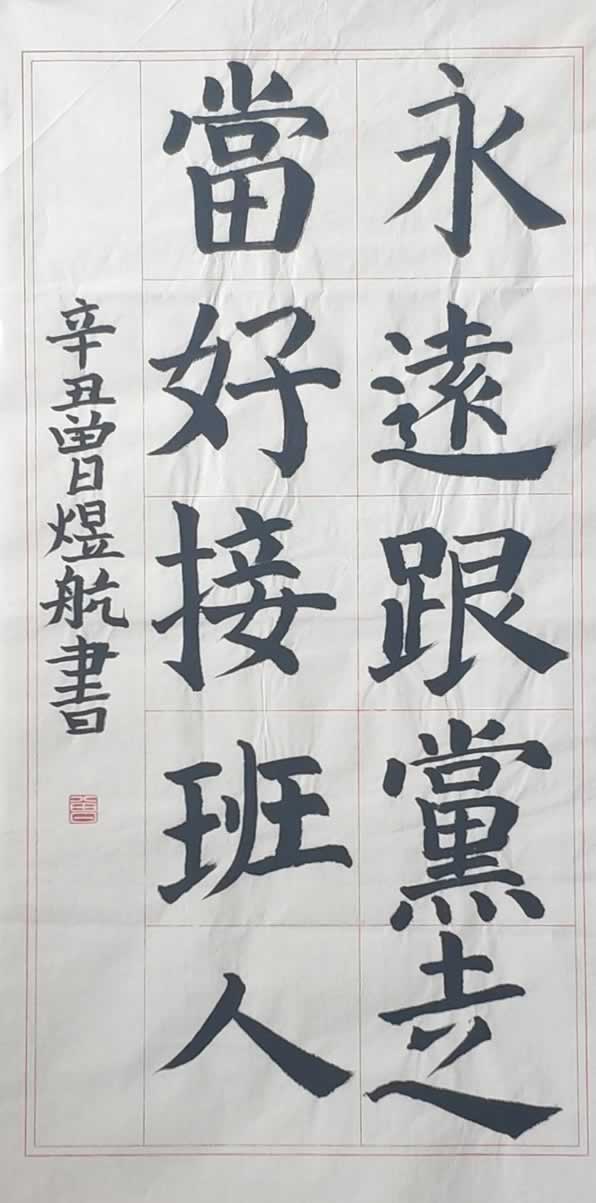 永遠跟黨走
當好接班人
辛丑曾煜航書